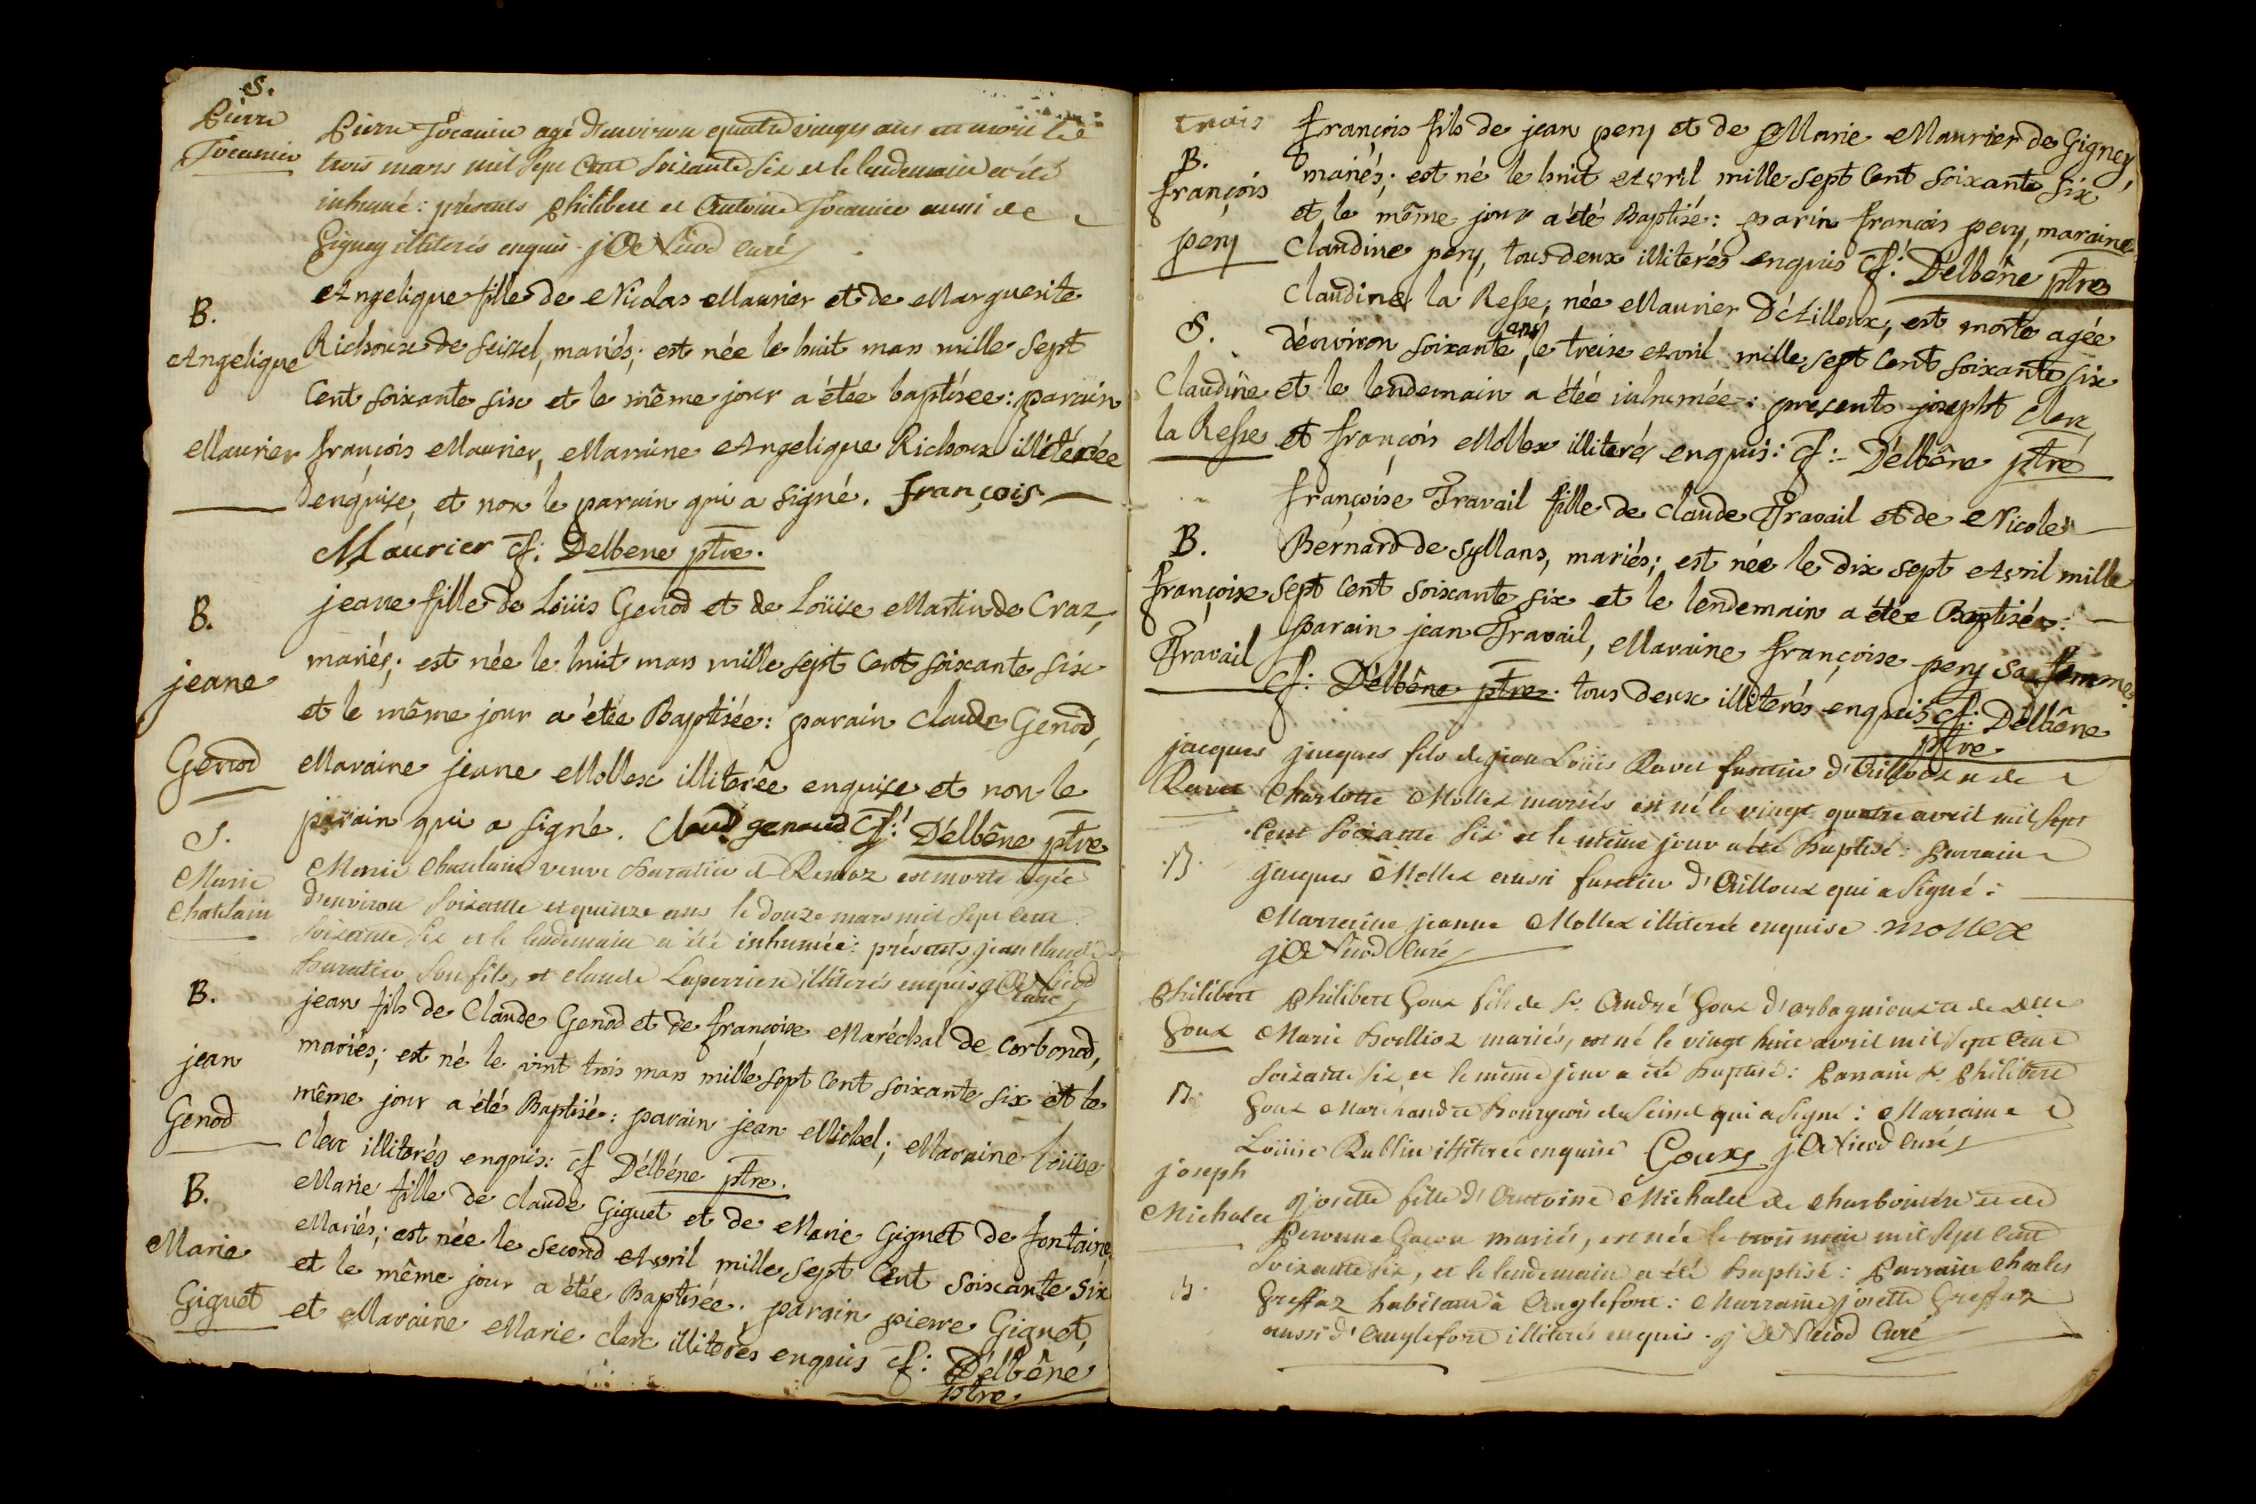 S.
Pierre
Jocanier
Pierre Jocanier agé d'environ quatre vingts ans est mort le
trois mars mil sept cent soixante six et le lendemain a été
inhumé : présents Philibert et Antoine Jocanier aussi de
Gigney illiterés enquis. j De Nicod curé
B.
Angelique
Maurier
Angelique fille de Nicolas Maurier et de Marguerite
Richoux de Seissel, mariés; est née le huit mars mille sept
Cent soixante six et le même jour a étée baptisee : parain
françois Maurier, Maraine Angelique Richoux illiterée
enquise, et non le parain qui a signé. françois
Maurier f: Delbene ptre.
B.
jeane
Genod
jeane fille de Loüis Genod et de Loüise Martin de Craz,
mariés; est née le huit mars mille sept Cent soixante six
et le même jour a étée Baptisée : parain Claude Genod,
Maraine jeane Mollex illiterée enquise et non le
parain qui a signé. Claud genaud f: Délbêne ptre
S.
Marie
Chatelain
Marie Chatelain veuve Buratier de Remoz est morte agée
d'environ soixante et quinze ans le douze mars mil sept cent
soixante six et le lendemain a été inhumée : présents, jean Claude
Buratier son fils, et Claude Laperriere illiterés enquis j De Nicod
curé
B.
jean
Genod
jean fils de Claude Genod et de françoise Maréchal de Corbonod,
mariés; est né le vint trois mars mille sept Cent soixante six et le
même jour a été Baptisé : parain jean Michel; Maraine loüise
Clerc illiterés enquis: f Délbéne ptre.
B.
Marie
Giguet
Marie fille de Claude Giguet et de Marie Giguet de fontaine
Mariés; est née le second Avril mille sept Cent soixante six
et le même jour a étée Baptisée. parain pierre Giguet,
et Maraine Marie Clerc illiterés enquis f: Délbêne
ptre.
trois
B.
françois
pery
françois fils de jean pery et de Marie Maurier de Gigney,
mariés; est né le huit Avril mille sept Cent soixante six
et le même jour a été Baptisé : parin françois pery, maraine
Claudine pery, tous deux illiterés enquis f: Délbêne ptre
S.
Claudine
la Resse
Claudine la Resse, née Maurier D'Ailloux, est morte agée
d'environ soixante ans le treise Avril mille sept Cent soixante six
et le lendemain a étée inhumée : presents josepht Clerc,
et françois Mollex illiterés enquis : f: Délbêne ptre
B.
françoise
Travail
françoise Travail fille de Claude Travail et de Nicole
Bérnard de syllans, mariés; est née le dix sept Avril mille
sept Cent soixante six et le lendemain a étée Baptisée :
parain jean Travail, Maraine françoise pery sa femme.
f: Délbêne ptre. tous deux illiterés enquis f: Délbêne
ptre
jacques
Ravet
B.
jacques fils de jean Loüis Ravet fustier d'Ailloux et de
Charlotte Mollex mariés est né le vingt quatre avril mil sept
cent soixante six et le même jour a été Baptisé : Parrain
jacques Mollex aussi fustier d'Ailloux qui a signé :
Marraine jeanne Mollex illiterée enquise mollex
j De Nicod curé
Philibert
Goux
B.
Philibert Goux fils de Sr. André Goux d'orbagnieux et de Dlle
Marie Bollioz mariés, est né le vingt huit avril mil sept cent
soixante six et le même jour a été Baptisé : Parrain Sr. Philibert
Goux Marchand et Bourgeois de Seissel qui a signé : Marraine
Loüise Rublin illiterée enquise Goux j De Nicod curé
joseph
Michalet
B.
josette fille d'Antoine Michalet de Charbonod et de
Peronne Gacon mariés, est née le trois mai mil sept cent
soixante six, et le lendemain a été Baptisé : Parrain Charles
Greffaz habitant à Anglefort : Marraine josette Greffaz
aussi d'Anglefort illiterés enquis. j De Nicod Curé